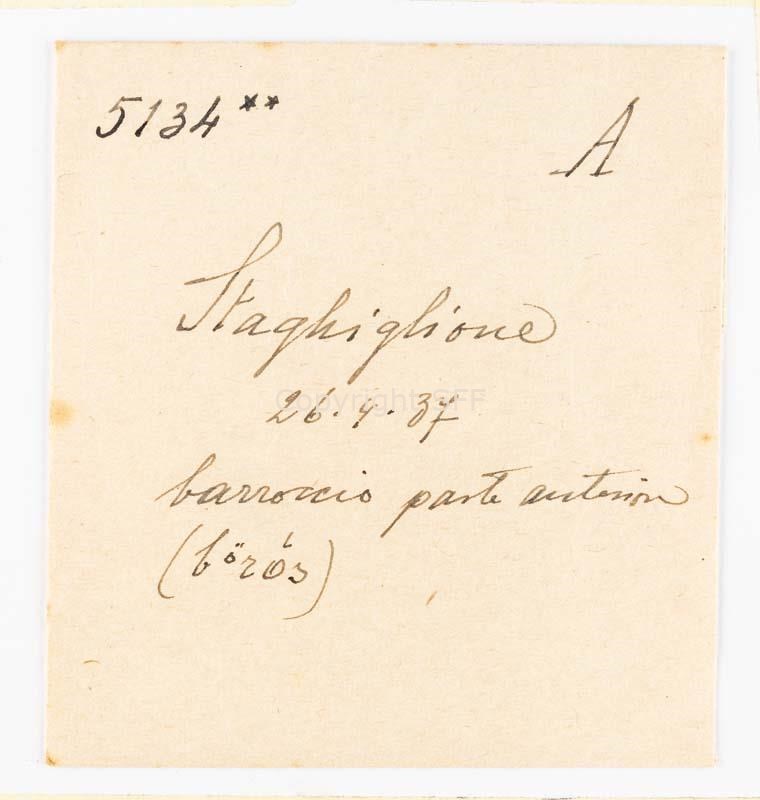 5134**
A
Staghiglione
Copyright SFF
26.4.37
barroccio parte anterior
(börós)